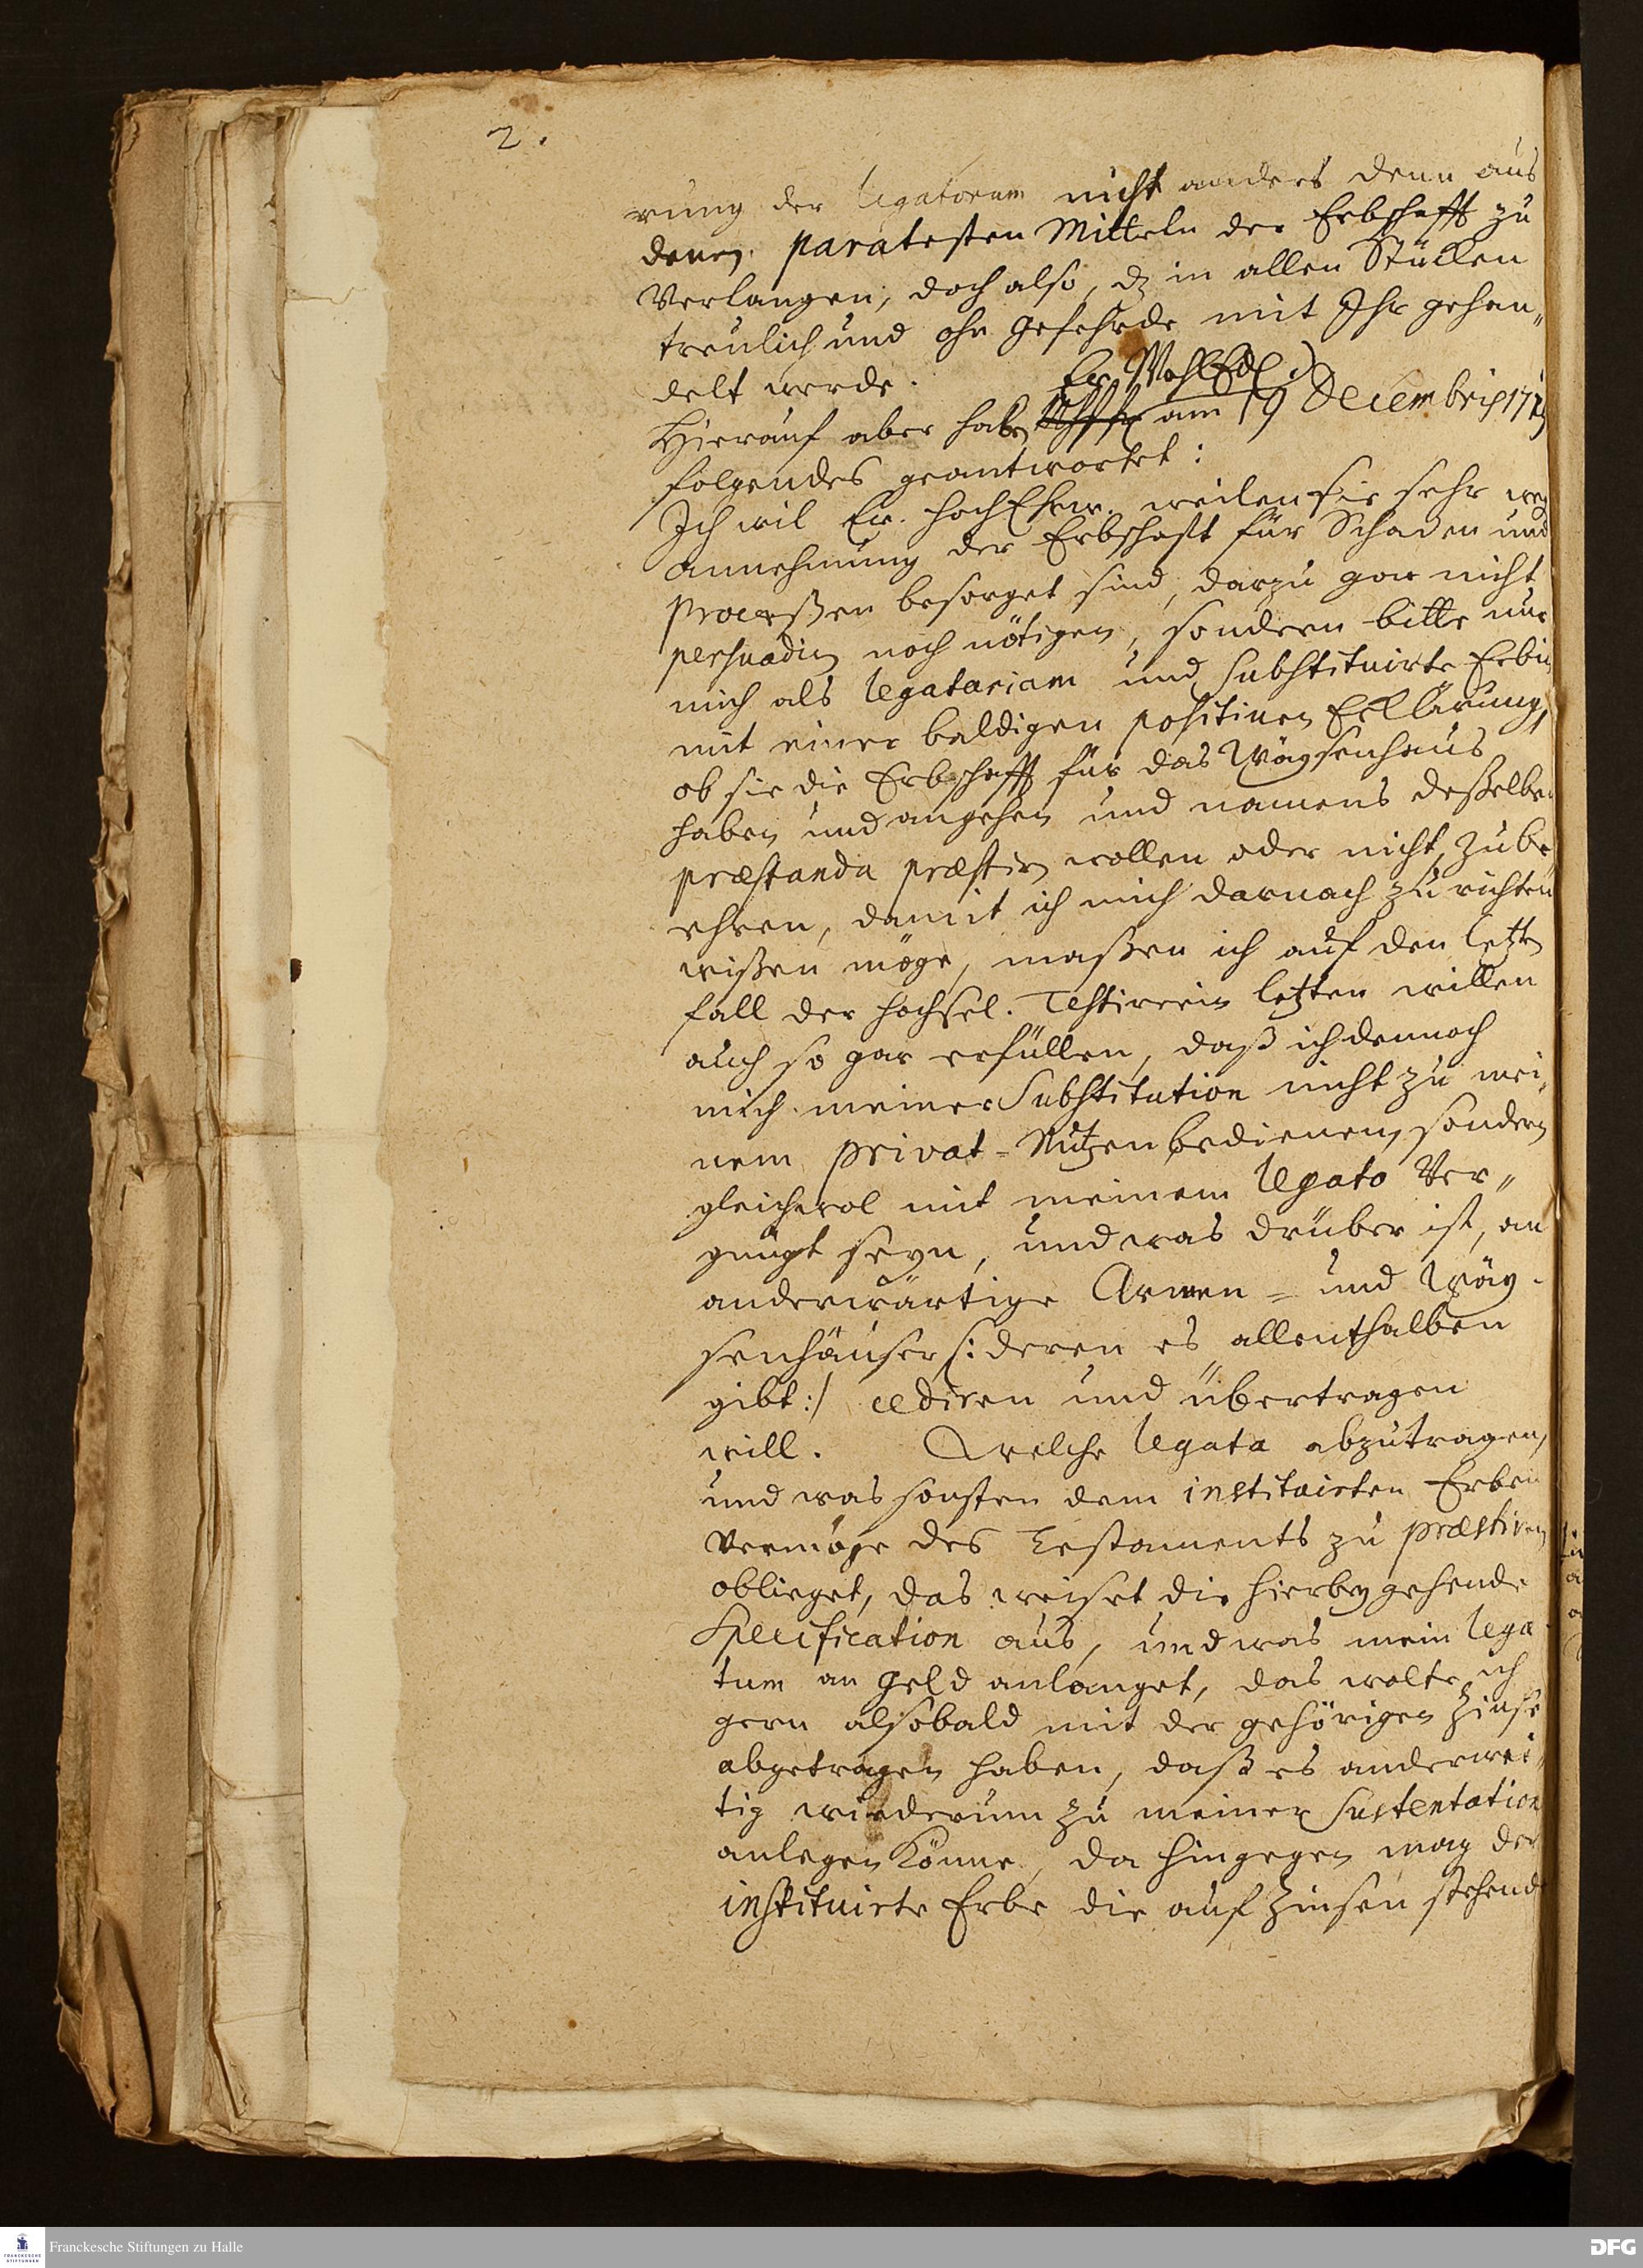 2.
rung der legatorum nicht anders denn aus
denen paratesten Mitteln der Erbschafft zu
Verlangen, doch also, dz in allen Stücken
treulich und ohn gefehrde mit Ihr gehan„
delt werde.
Ew. WohlEdl.
Hierauf aber haben am 19 Decembris
folgendes geantwortet:
Ich wil Ew. HochEhrw. weilen sie sehr weg
annehmung der Erbschaft für Schaden und
Processen besorget sind, darzu gar nicht
persuadiren noch nötigen, sondern bitte nur
mich als legatariam und substituirte Erbin
mit einer baldigen positiven Erklärung,
ob sie die Erbschafft für das Wäysenhaus
haben und angehen und namens deßelben
præstanda præstiren wollen oder nicht, zu be
ehren, damit ich mich darnach zu richten
wißen möge, maßen ich auf den letzten
fall der hochsel. Testirerin letzten willen
auch so gar erfüllen, daß ich dennoch
mich meiner Substitution nicht zu mei„
nem privat-Nutzen bedienen, sondern
gleichwol mit meinem legato Ver„
gnügt seyn, und was drüber ist, an
anderwärtige Armen- und Wäy-
senhäuser /: deren es allenthalben
gibt :/ cediren und übertragen
will. Welche legata abzutragen,
und was sonsten dem instituirten Erben
vermöge des Testaments zu præstiren
oblieget, das weiset die hierbey gehende
Specification aus, und was mein lega
tum an Geld anlanget, das wolte ich
gern alsobald mit der gehörigen Zinse
abgetragen haben, daß es anderwei„
tig wiederum zu meiner Sustentation
anlegen könne, da hingegen mag der
instituirte Erbe die auf Zinsen stehende
Franckesche Stiftungen zu Halle
DFG